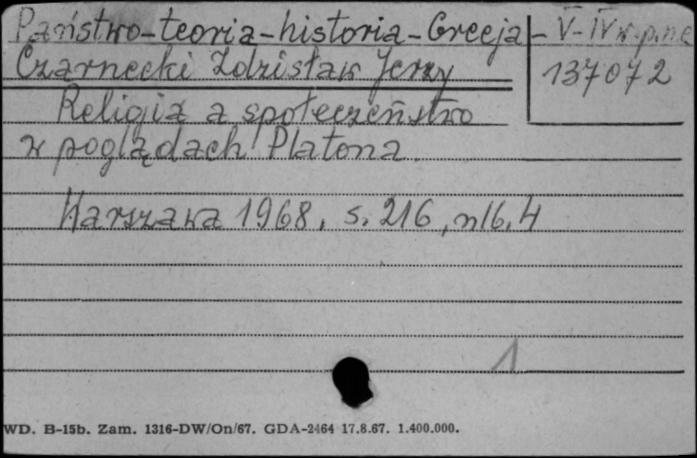 Państwo-teoria-historia-Grecja-V-IVw.p.n.e
Czarnecki Zdzisław Jerzy
137072
Religia a społeczeństwo
w poglądach Platona.
Warszawa 1968, s. 216, nlb. 4
1
WD. B-15b. Zam. 1316-DW/On/67. GDA-2464 17.8.67. 1.400.000.